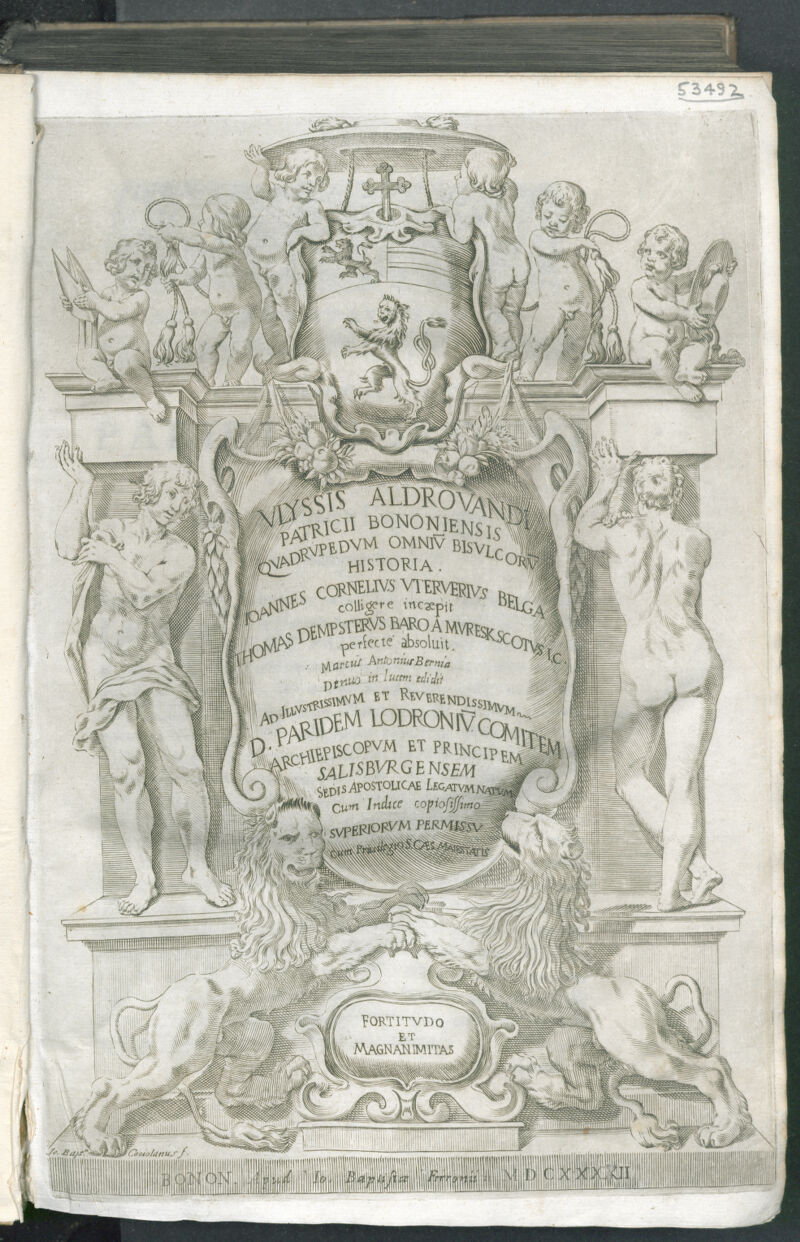 53492
VLYSSIS ALDROVANDI
PATRICII BONONIENSIS
QVADRVPEDVM OMNIV̄ BISVLCORV̄
HISTORIA.
IOANNES CORNELIVS VTERVERIVS BELGA
colligere incæpit
THOMAS DEMPSTERVS BARO A MVRESK SCOTVS I.C.
perfecte absoluit.
Marcus Antonius Bernia
Denuo in lucem edidit
AD ILLVSTRISSIMVM ET REVERENDISSIMVM
D. PARIDEM LODRONIV̄ COMITEM
ARCHIEPISCOPVM ET PRINCIPEM
SALISBVRGENSEM
SEDIS APOSTOLICAE LEGATVM NATVM
Cum Indice copiosissimo
SVPERIORVM PERMISSV
Cum Priuilegio S. CÆS. MAIESTATIS
FORTITVDO
ET
MAGNANIMITAS
Io. Bapt. Coriolanus f.
BONON. Apud Io. Baptistæ Ferronij